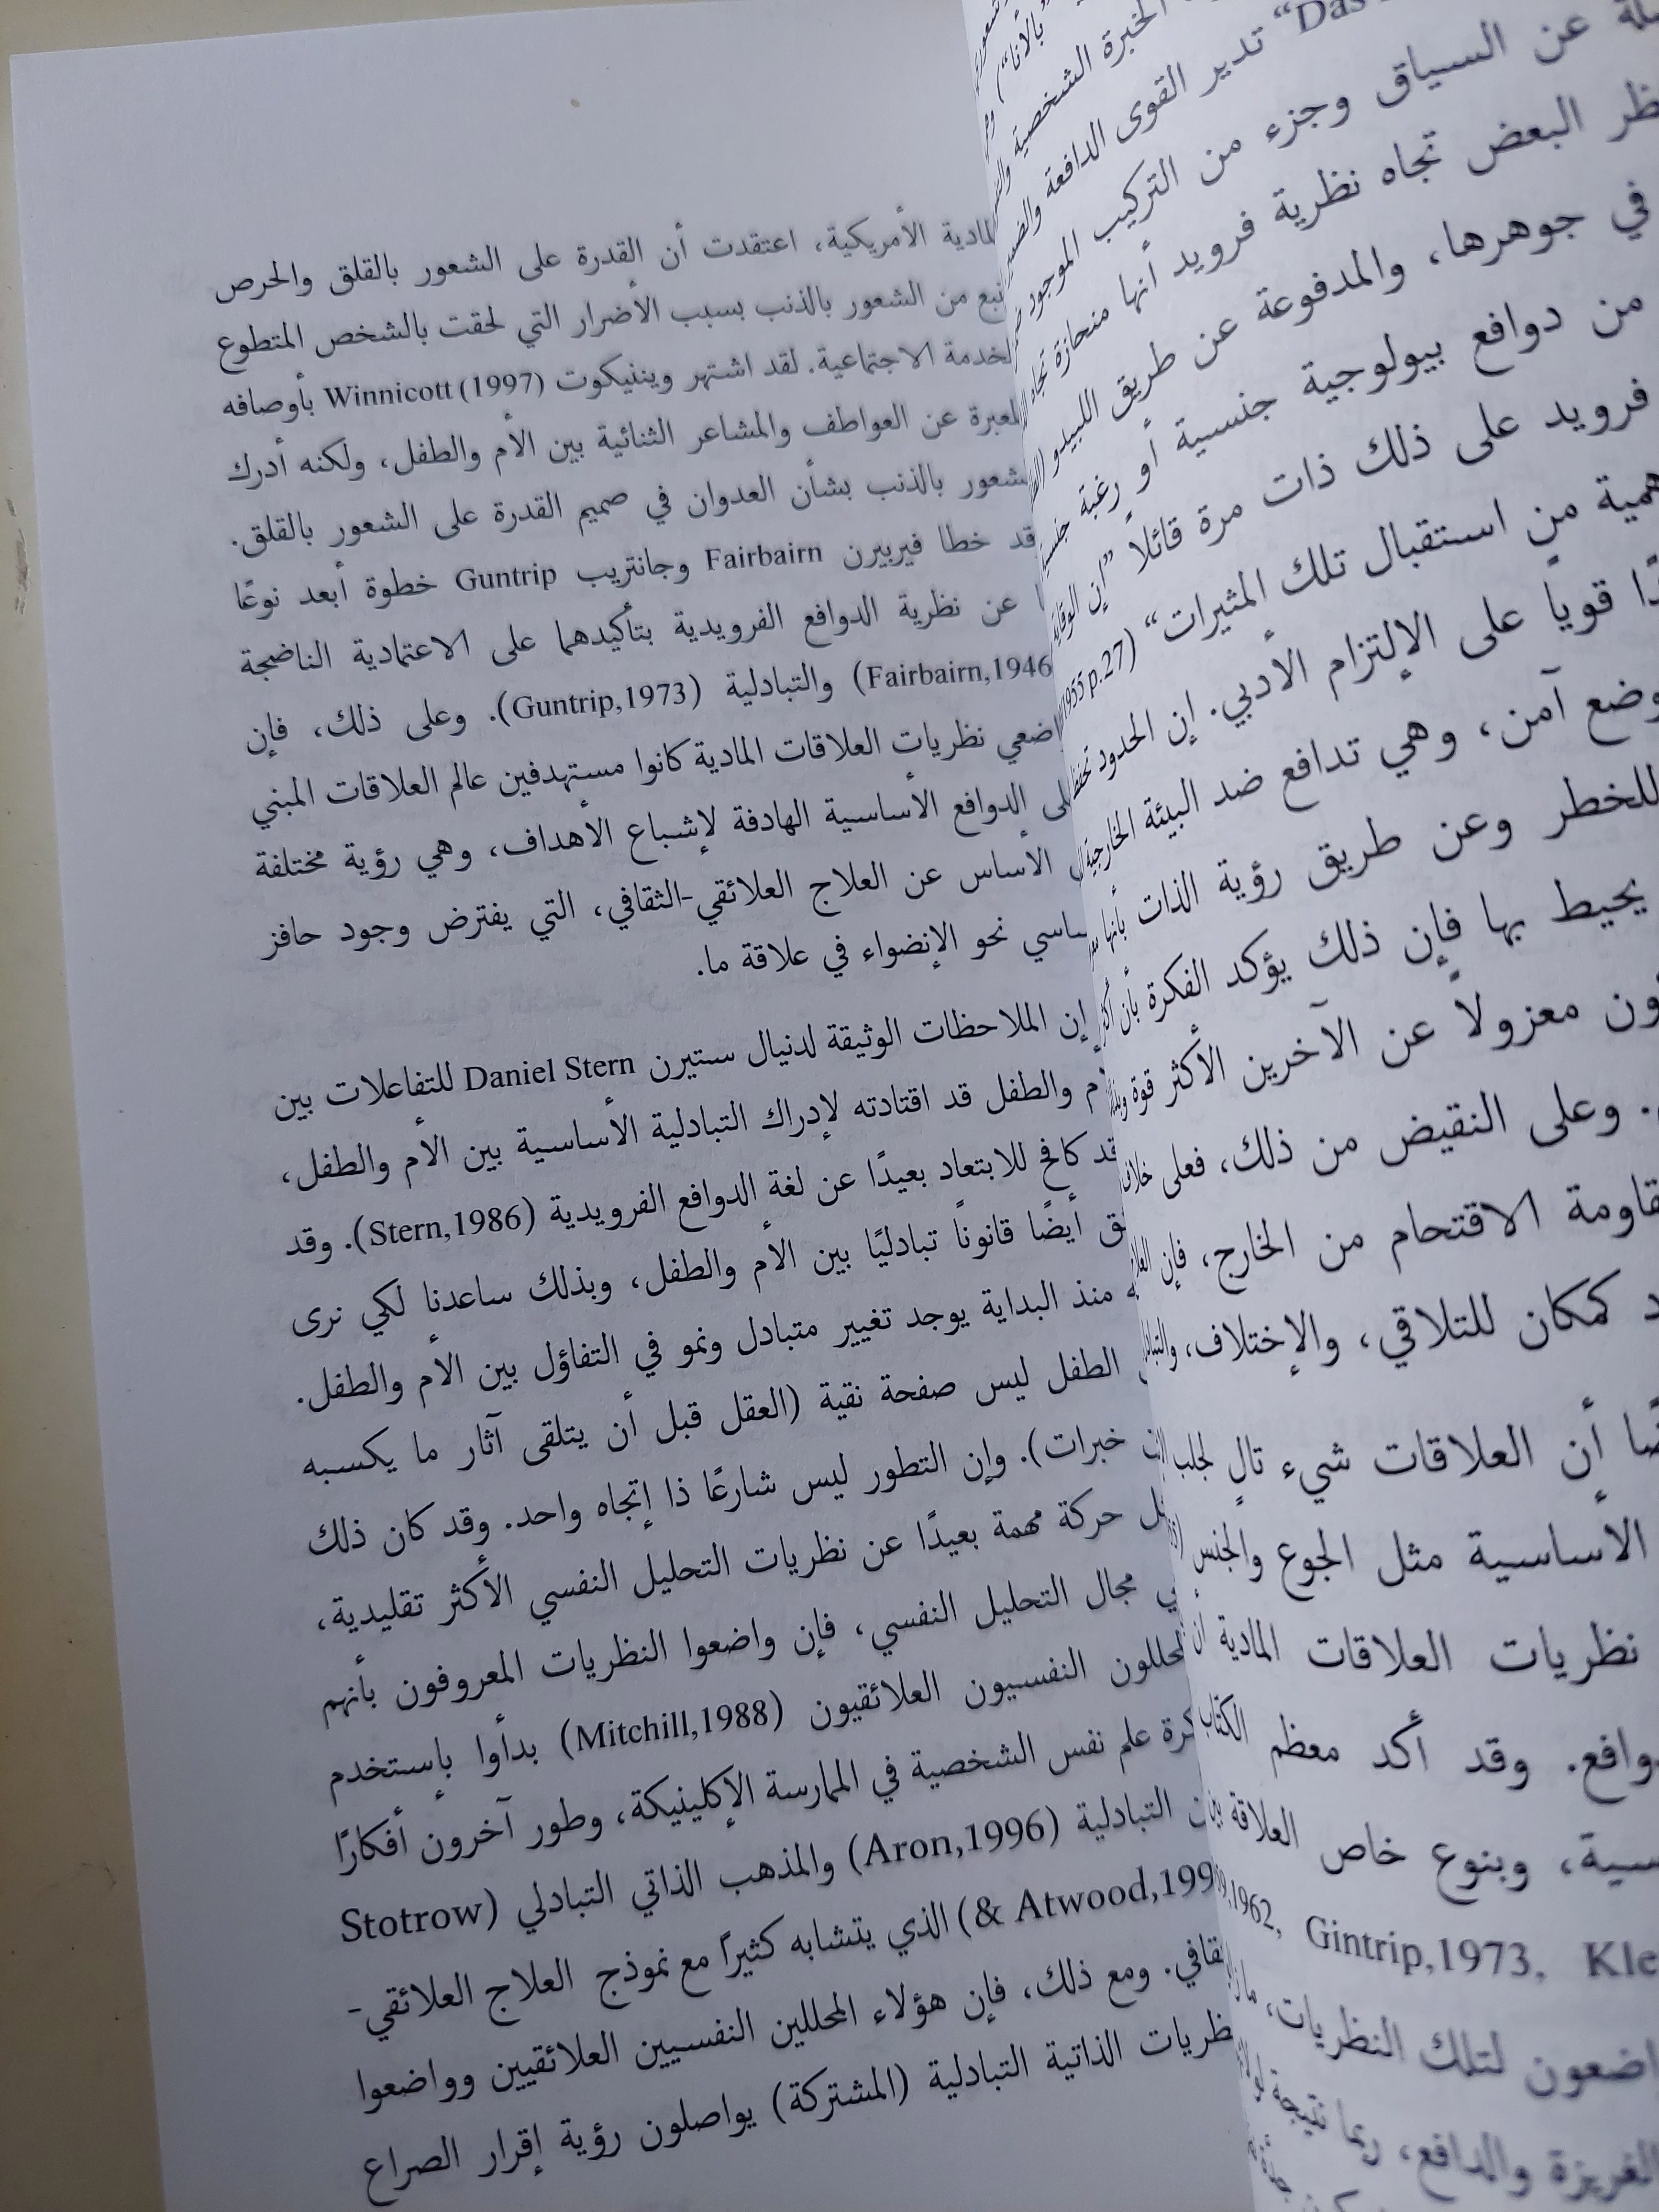 بالأنا“)
الخبرة الشخصية
“Das تدير القوى الدافعة
عن السياق وجزء من التركيب الموجود
البعض تجاه نظرية فرويد أنها منحازة تجاه
في جوهرها، والمدفوعة عن طريق الليبيدو
من دوافع بيولوجية جنسية أو رغبة
فرويد على ذلك ذات مرة قائلاً ”إن الوقاية
من استقبال تلك المثيرات“ (1955 p.27
قوياً على الإلتزام الأدبي. إن الحدود تحفظ
آمن، وهي تدافع ضد البيئة الخارجية
للخطر وعن طريق رؤية الذات بأنها
يحيط بها فإن ذلك يؤكد الفكرة بأن
معزولاً عن الآخرين الأكثر قوة
وعلى النقيض من ذلك، فعلى
الاقتحام من الخارج، فإن
كمكان للتلاقي، والإختلاف،
أن العلاقات شيء تالٍ لجلب
الأساسية مثل الجوع والجنس
نظريات العلاقات المادية أن
وقد أكد معظم الكتاب
وبنوع خاص العلاقة بين
1962, Gintrip,1973,
لتلك النظريات،
الغريزة والدافع، ربما نتيجة
المادية الأمريكية، اعتقدت أن القدرة على الشعور بالقلق والحرص
من الشعور بالذنب بسبب الأضرار التي لحقت بالشخص المتطوع
الاجتماعية. لقد اشتهر وينيكوت Winnicott (1997) بأوصافه
عن العواطف والمشاعر الثنائية بين الأم والطفل، ولكنه أدرك
بالذنب بشأن العدوان في صميم القدرة على الشعور بالقلق.
خطا فيربيرن Fairbairn وجانتريب Guntrip خطوة أبعد نوعًا
عن نظرية الدوافع الفرويدية بتأكيدهما على الاعتمادية الناضجة
(Fairbairn,1946 والتبادلية (Guntrip,1973). وعلى ذلك، فإن
نظريات العلاقات المادية كانوا مستهدفين عالم العلاقات المبني
الدوافع الأساسية الهادفة لإشباع الأهداف، وهي رؤية مختلفة
الأساس عن العلاج العلائقي-الثقافي، التي يفترض وجود حافز
نحو الإنضواء في علاقة ما.
إن الملاحظات الوثيقة لدنيال ستيرن Daniel Stern للتفاعلات بين
والطفل قد اقتادته لإدراك التبادلية الأساسية بين الأم والطفل،
كافح للابتعاد بعيدًا عن لغة الدوافع الفرويدية (Stern,1986). وقد
أيضًا قانونًا تبادليًا بين الأم والطفل، وبذلك ساعدنا لكي نرى
منذ البداية يوجد تغيير متبادل ونمو في التفاؤل بين الأم والطفل.
الطفل ليس صفحة نقية (العقل قبل أن يتلقى آثار ما يكسبه
خبرات). وإن التطور ليس شارعًا ذا إتجاه واحد. وقد كان ذلك
حركة مهمة بعيدًا عن نظريات التحليل النفسي الأكثر تقليدية،
مجال التحليل النفسي، فإن واضعوا النظريات المعروفون بأنهم
النفسيون العلائقيون (Mitchill,1988) بدأوا بإستخدم
علم نفس الشخصية في الممارسة الإكلينيكة، وطور آخرون أفكارًا
التبادلية (Aron,1996) والمذهب الذاتي التبادلي (Stotrow
& Atwood,199) الذي يتشابه كثيرًا مع نموذج العلاج العلائقي-
ومع ذلك، فإن هؤلاء المحللين النفسيين العلائقيين وواضعوا
الذاتية التبادلية (المشتركة) يواصلون رؤية إقرار الصراع